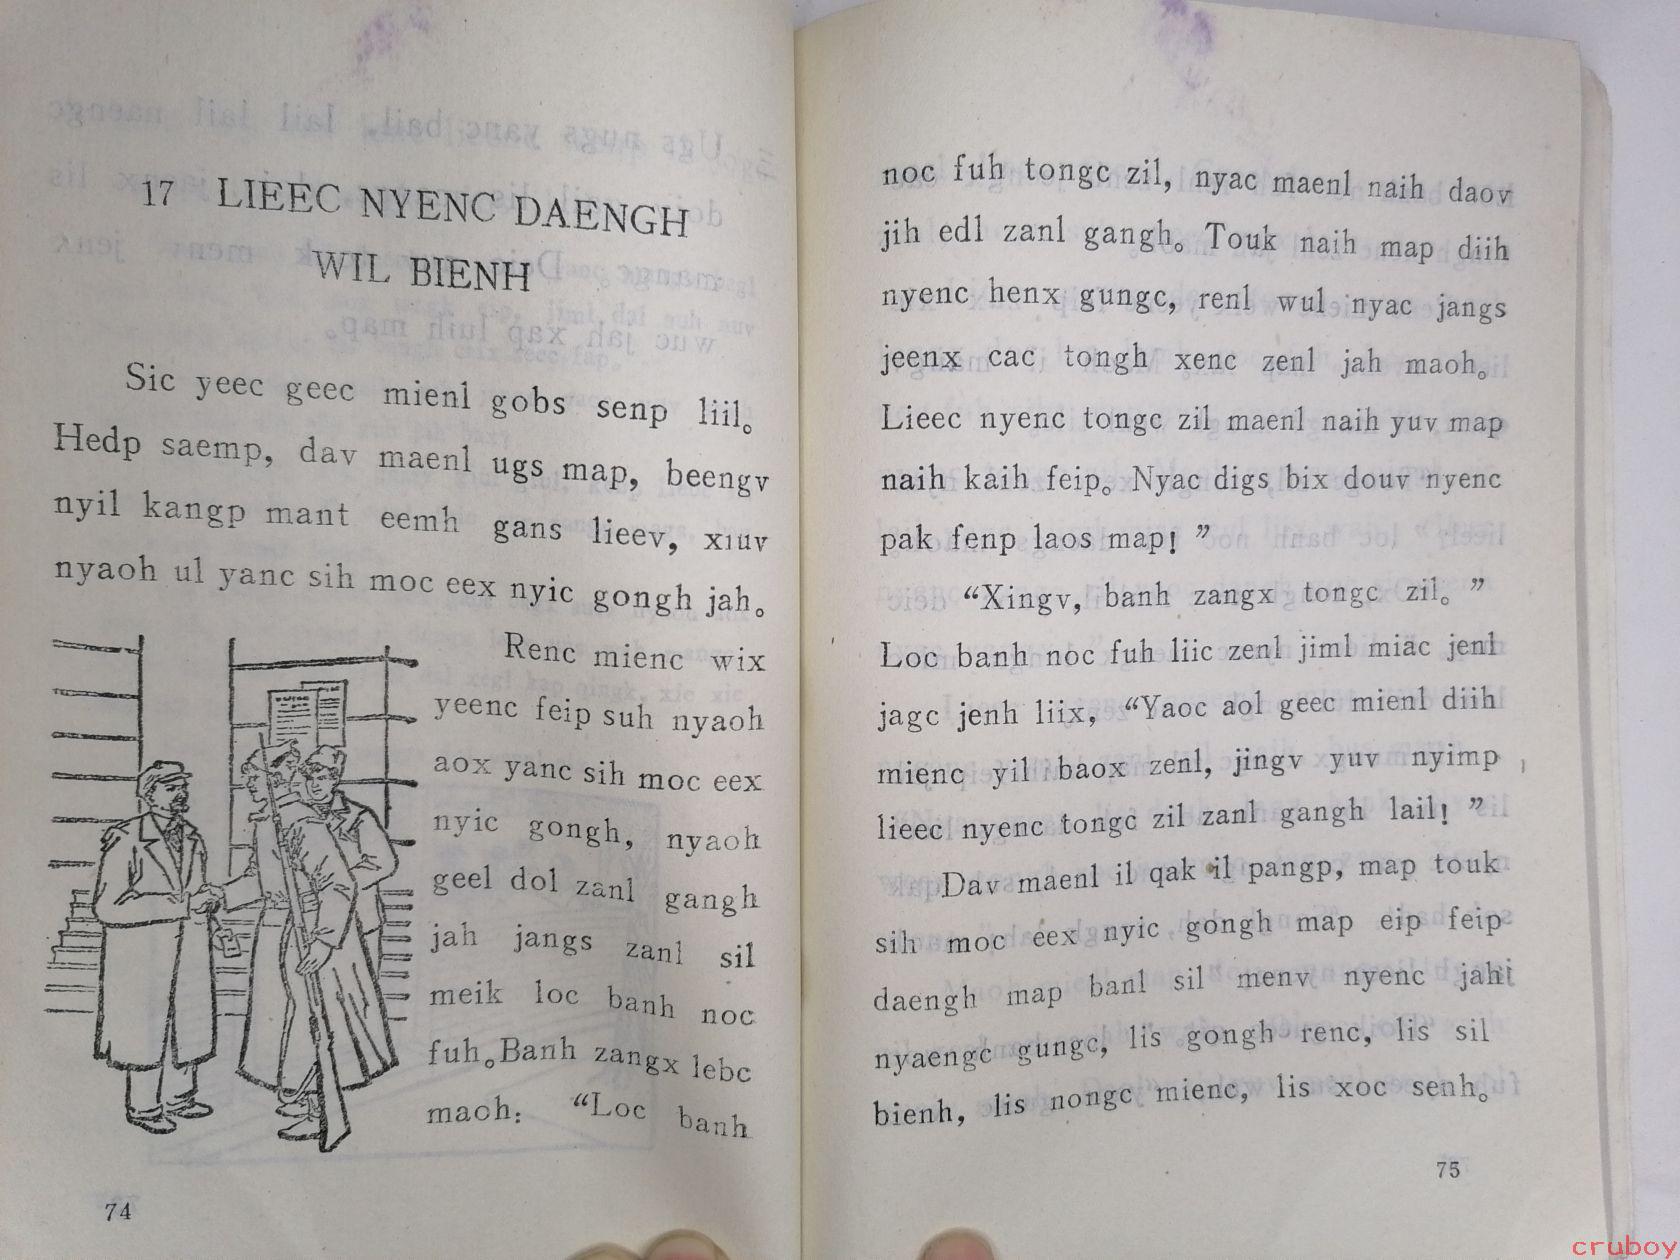 17 LIEEC NYENC DAENGH
WIL BIENH
Sic yeec geec mienl gobs senp liil。
Hedp saemp, dav maenl ugs map, beengv
nyil kangp mant eemh gans lieev, xiuv
nyaoh ul yanc sih moc eex nyic gongh jah。
Renc mienc wix
yeenc feip suh nyaoh
aox yanc sih moc eex
nyic gongh, nyaoh
geel dol zanl gangh
jah jangs zanl sil
meik loc banh noc
fuh。Banh zangx lebc
maoh: “Loc banh
74
noc fuh tongc zil, nyac maenl naih daov
jih edl zanl gangh。Touk naih map diih
nyenc henx gungc, renl wul nyac jangs
jeenx cac tongh xenc zenl jah maoh。
Lieec nyenc tongc zil maenl naih yuv map
naih kaih feip。Nyac digs bix douv nyenc
pak fenp laos map! ”
“Xingv, banh zangx tongc zil。”
Loc banh noc fuh liic zenl jiml miac jenl
jagc jenh liix, “Yaoc aol geec mienl diih
mienc yil baox zenl, jingv yuv nyimp
lieec nyenc tongc zil zanl gangh lail! ”
Dav maenl il qak il pangp, map touk
sih moc eex nyic gongh map eip feip
daengh map banl sil menv nyenc jahi
nyaengc gungc, lis gongh renc, lis sil
bienh, lis nongc mienc, lis xoc senh。
75
cruboy